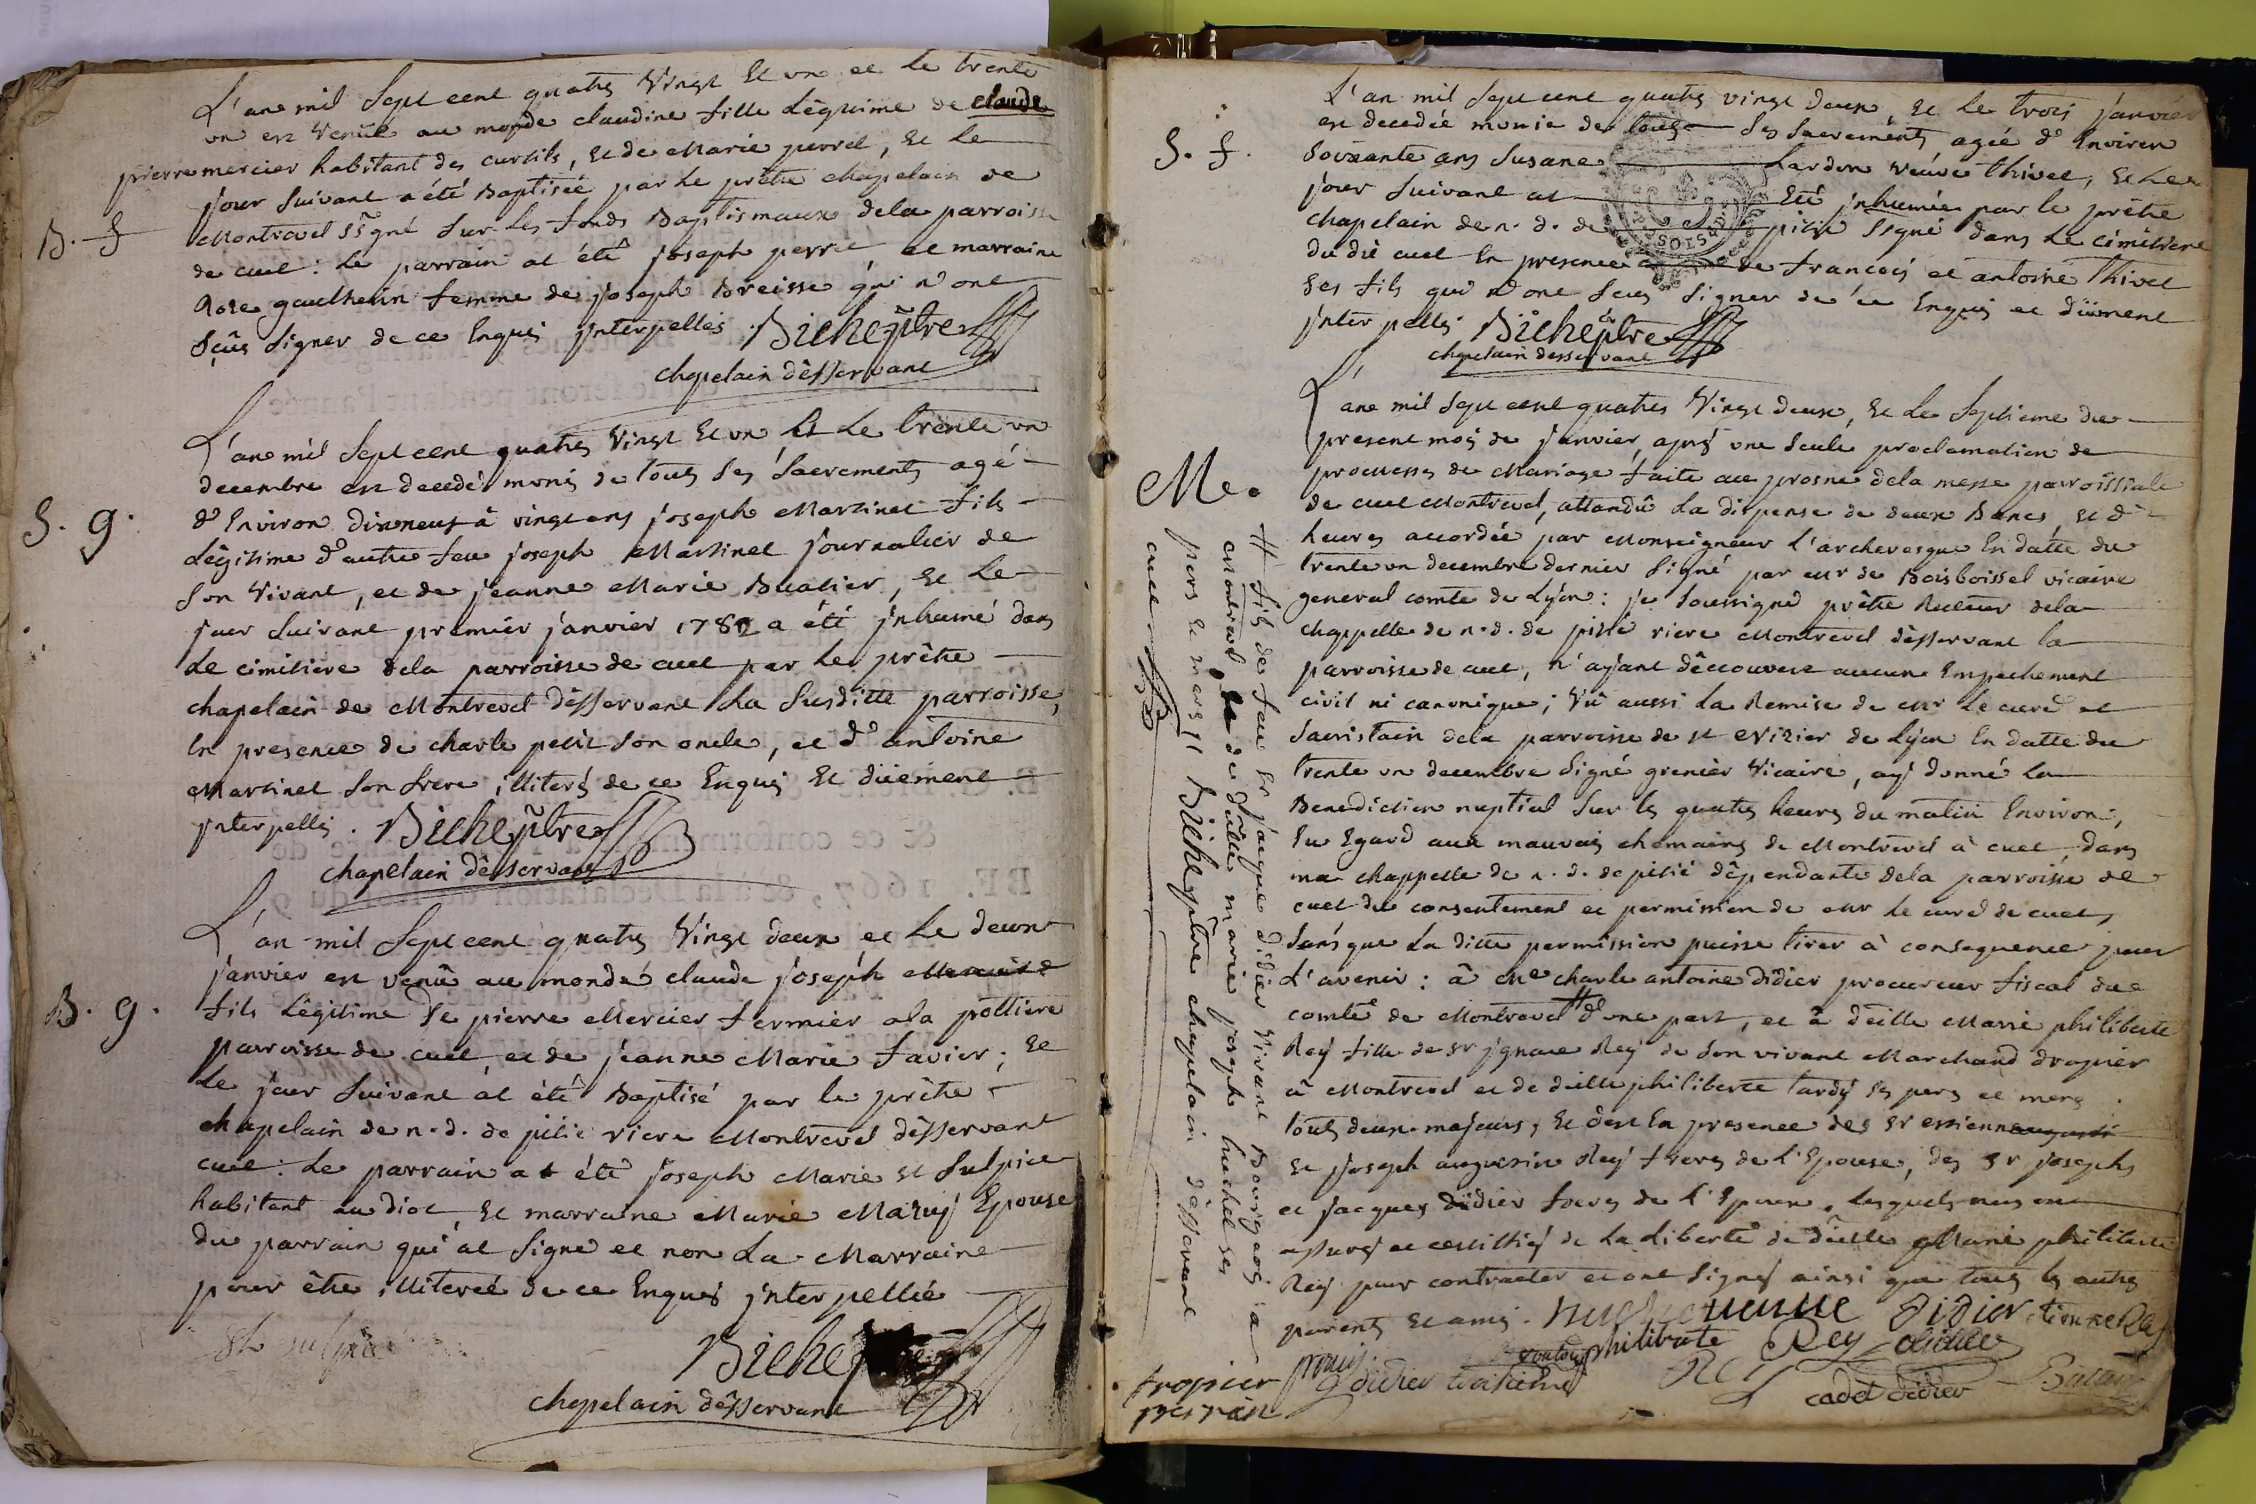 L'an mil sept cent quatre vingt et un et le trente
un est venüe au monde claudine fille légitime de claude
pierre mercier habitant des curtils, et de Marie perret, et le
jour suivant a été Baptisée par le prêtre chapelain de
B. f
Montrevel ssgné sur les fonds Baptismaux dela parroisse
de cuet : le parrain at été joseph perret, et marraine
Rose femme de joseph Breisse qui n'ont
sçûs signer de ce Enquis jnterpellés. Biche ptre
chapelain dêsservant
L'an mil sept cent quatre vingt et un et le trente un
decembre est decedé munis de tous ses sacrements agé
S. g.
d'Environ dixneuf à vingt ans joseph Martinet fils
légitime d'autre feu joseph Martinet journalier de
son vivant, et de jeanne Marie Buatier, et le
jour suivant premier janvier 1782 a été jnhumé dans
le cimitiere dela parroisse de cuet par le prêtre
chapelain de Montrevel dêsservant la susditte parroisse,
en presence de charle petit son oncle, et d'antoine
Martinet son frere illiterés de ce Enquis et düement
jnterpellés. Biche ptre
chapelain dêsservant
L'an mil sept cent quatre vingt deux et le deux
janvier est venû au monde claude joseph
B. g.
fils légitime de pierre Mercier fermier ala pottiere
parroisse de cuet et de jeanne Marie favier ; et
le jour suivant at été Baptisé par le prêtre
chapelain de n.d. de pitié riere Montrevel dêsservant
cuet : le parrain at été joseph Marie st sulpice
habitant audiot, et marraine Marie Epouse
du parrain qui at signé et non la Marraine
pour être illiterée de ce Enquis jnterpellée
st sulpice
Biche
chapelain dêsservant
L'an mil sept cent quatre vingt deux, et le trois janvier
est decedée munie de tous ses sacrements, agée d'Environ
S. f.
soixante ans Susane Lardon veuve thivet, et le
jour suivant at Eté jnhumée par le prêtre
chapelain de n. d. de pitié ssgné dans le cimitiere
du dit cuet en presence de francois et antoine thivet
ses fils qui n'ont sçus signer de ce Enquis et düment
jnterpellés. Biche ptre
chapelain desservant
L'an mil sept cent quatre vingt deux, et le septieme du
present mois de janvier, après une seule proclamation de
promesses de Mariage faite au prosne dela messe parroissiale
M.
de cuet Montrevel, attandû la dispense de deux Bancs, et d'
heures accordée par Monseigneur l'archevesque En datte du
trente un decembre dernier signé par mr de Boisboissel vicaire
general comte de Lyon : je soussigné prêtre Recteur dela
chappelle de n.d. de pitié riere Montrevel dêsservant la
parroisse de cuet, n'ayant dêcouvert aucun Empechement
civil ni canonique ; vû aussi la Remise de mr le curé et
sacristain dela parroisse de st Nizier de Lyon En datte du
trente un decembre signé grenier vicaire, ay donné la
Benediction nuptial sur les quatre heures du matin Environ,
Eu Egard aux mauvais chemains de Montrevel à cuet, dans
ma chappelle de n. d. de pitié dêpendante dela parroisse de
cuet du consentement et permission de mr le curé de cuet,
sans que la ditte permission puisse tirer à consequence pour
l'avenir : à Me charle antoine didier procureur fiscal du
comté de Montrevel # d'une part, et à delle Marie philiberte
Rey fille de sr jgnace Rey de son vivant Marchand drapier
à Montrevel et de delle philiberte tardy ses pere et mere
tous deux majeurs, et c'est En presence des sr estienne
et joseph augustin Rey freres de l'Epouse, des sr joseph
et jacques didier freres de l'Epoux, lesquels nous ont
assurés et certifiés de la liberté de delle Marie philiberte
Rey pour contracter et ont signés ainsi que tous les autres
parents et amis. didier Etienne Rey
philiberte Rey didier
didier Rey cadet didier
# fils de feu sr jacque didier vivant Bourgeois a
Montrevel de delle marie joseph ses
pere et mere Biche ptre chapelain dêsservant
cuet